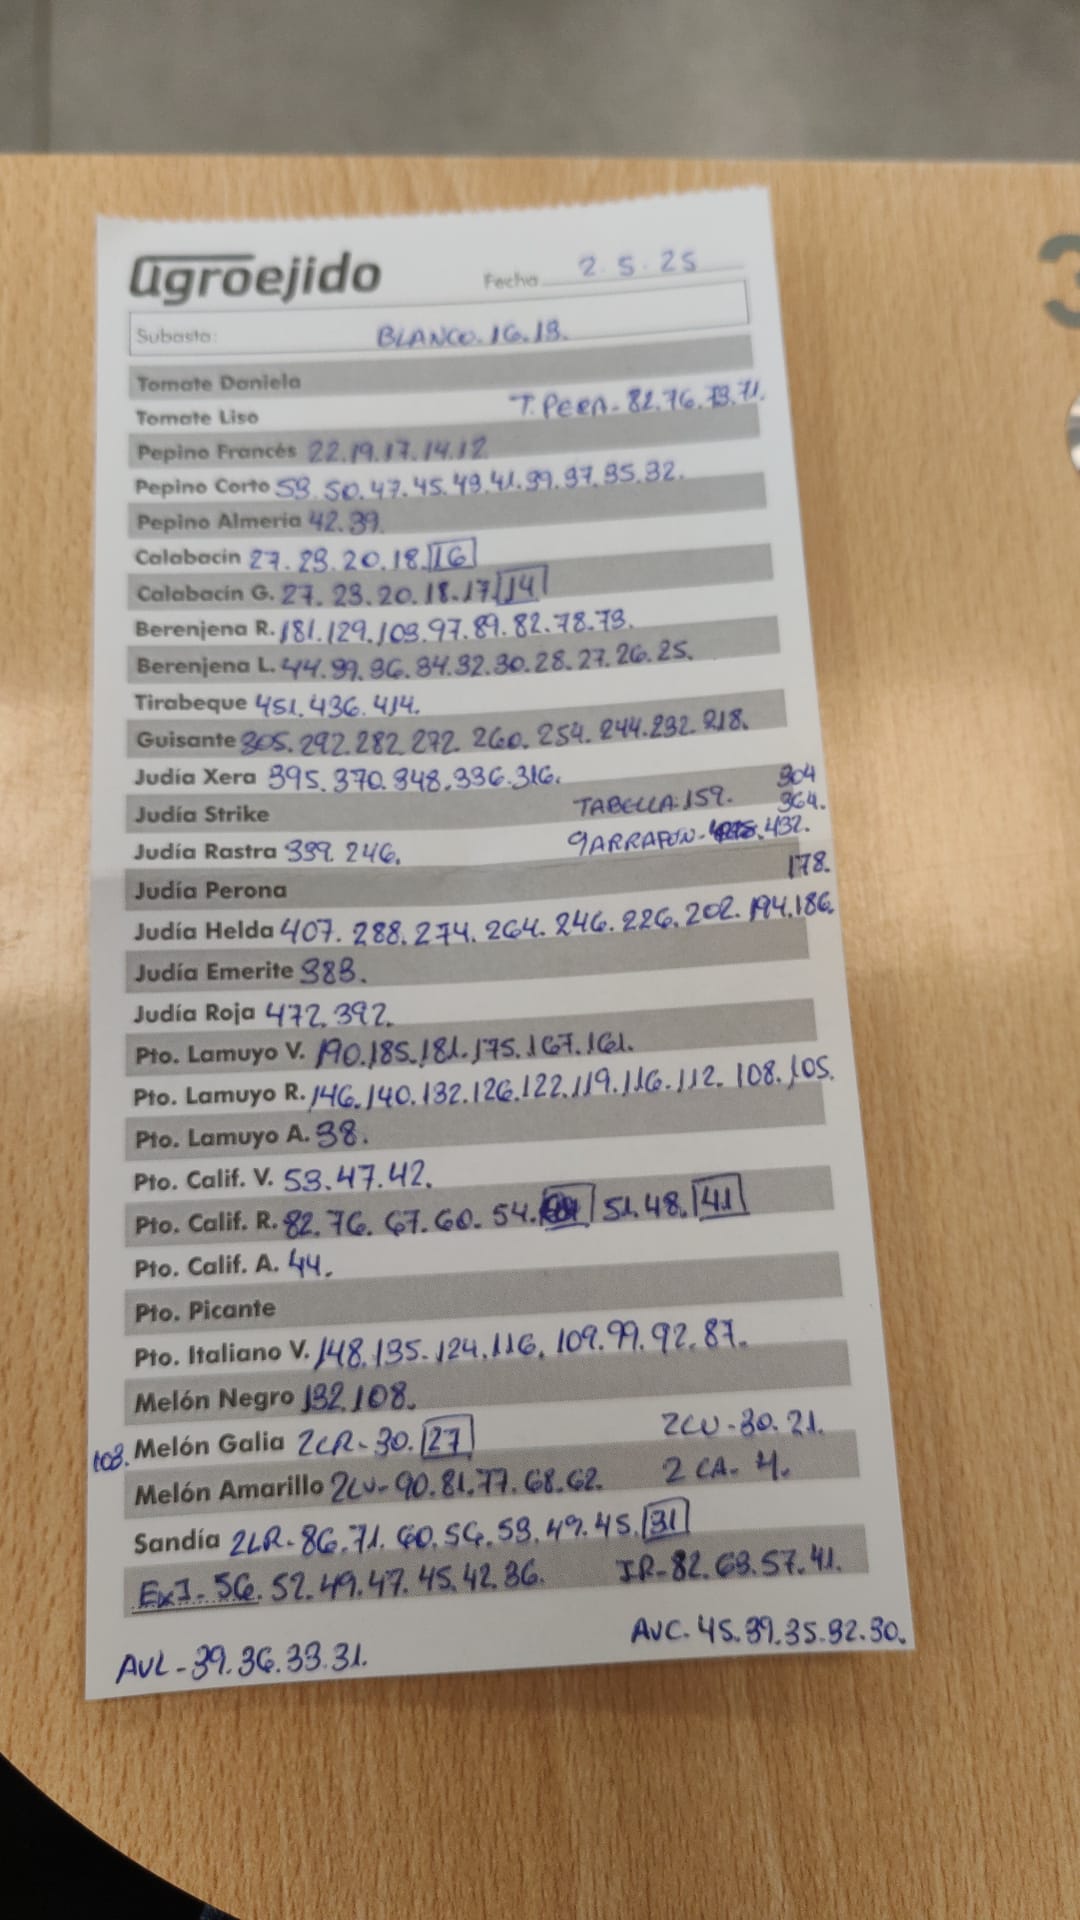 agroejido
Fecha 2.5.25
Subasta: BLANCO.16.13.
Tomate Daniela
Tomate Liso T.PERA-82.76.73.71.
Pepino Francés 22.19.17.14.12
Pepino Corto 53.50.47.45.43.41.39.37.35.32.
Pepino Almeria 42.39.
Calabacín 27.23.20.18.16
Calabacín G. 27.23.20.18.17.14
Berenjena R. 181.129.103.97.89.82.78.73.
Berenjena L. 44.39.36.34.32.30.28.27.26.25.
Tirabeque 451.436.414.
Guisante 305.292.282.272.260.254.244.232.218.
Judía Xera 395.370.348.336.316. 304
Judía Strike TABELLA:159. 364.
Judía Rastra 339.246. GARRAFON-432.
Judía Perona 178.
Judía Helda 407.288.274.264.246.226.202.194.186.
Judía Emerite 383.
Judía Roja 472.392.
Pto. Lamuyo V. 190.185.181.175.167.161.
Pto. Lamuyo R. 146.140.132.126.122.119.116.112.108.105.
Pto. Lamuyo A. 38.
Pto. Calif. V. 53.47.42.
Pto. Calif. R. 82.76.67.60.54. 51.48.41
Pto. Calif. A. 44.
Pto. Picante
Pto. Italiano V. 148.135.124.116.109.99.92.87.
Melón Negro 132.108.
103. Melón Galia 2CR-30.27 2CU-30.21.
Melón Amarillo 2LV-90.81.77.68.62. 2 CA-4.
Sandía 2LR-86.71.60.56.53.49.45.31
ExI-56.52.49.47.45.42.36. IR-82.63.57.41.
AVC-45.39.35.32.30.
AVL-39.36.33.31.